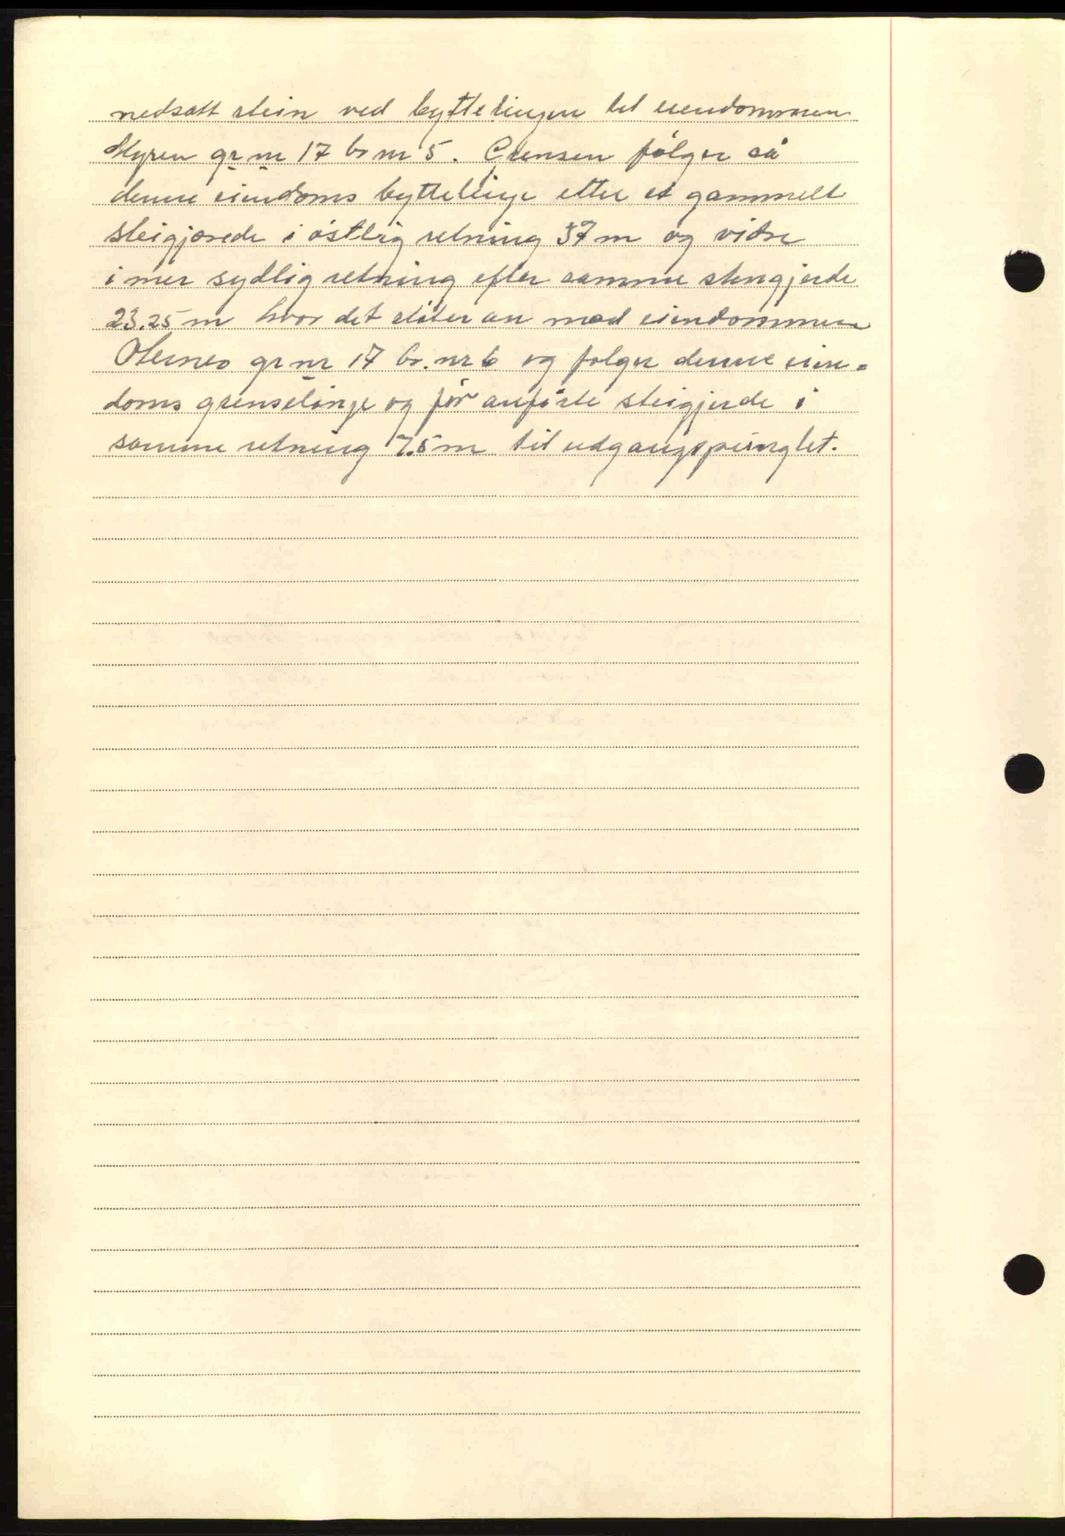 nedsatt stein ved byttelingen til eiendommen
Myren gr nr 17 br nr 5. Grensen følger så
denne eiendoms byttelinje etter et gammelt
steigjærede i østlig retning 37 m og vidre
i mer sydlig retning efter samme stengjerde
23.25 m hvor det stöter an mod eiendommen
Oternes gr nr 17 br. nr 6 og følger denne eien=
doms grenselinje og før anførte steigjerde i
samme retning 7.5 m til udgangspunglet.